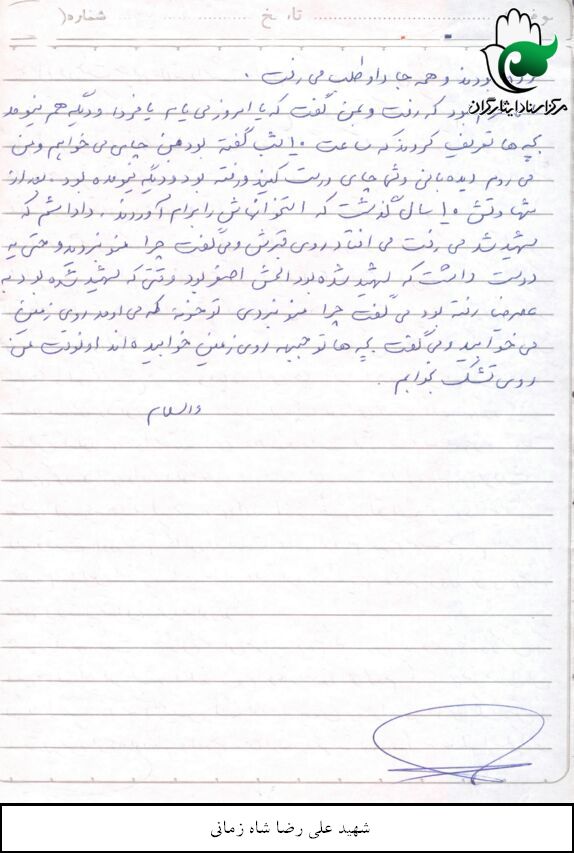 تاریخ شماره(
مرکز اسناد ایثارگران
بودند و همه جا داوطلب می رفت .
بود که رفت و بمن گفت که یا امروز می یام یا فردا و دیگه هم نیومد
بچه ها تعریف کردند که ساعت ۱۰ شب گفته بود من چایی می خواهم و من
می روم دیده بانی وقتی چایی درست کنید و رفته بود و دیگه نیومده بود . بعد از
شهادتش ۱۰ سال گذشت که استخوانهایش را برام آوردند . داداشم که
شهید شد می رفت می افتاد روی قبرش و می گفت چرا منو نبردید و حتی یه
دوست داشت که شهید شده بود اسمش اصغر بود وقتی که شهید شده بود به
علیرضا رفته بود می گفت چرا منو نبردی تو خونه که می اومد روی زمین
می خوابید و می گفت بچه ها تو جبهه روی زمین خوابیده اند اونوقت من
روی تشک بخوابم .
والسلام
شهید علی رضا شاه زمانی